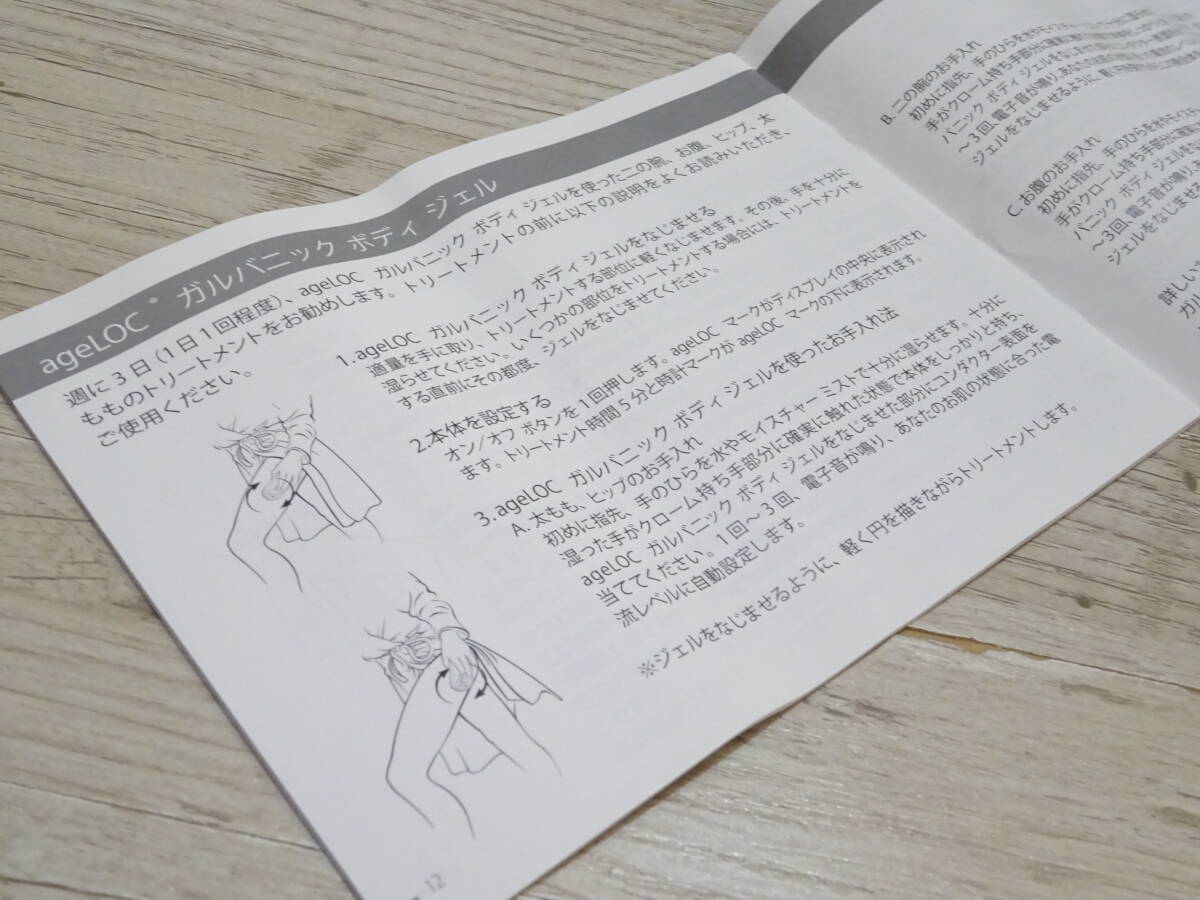 ageLOC® ガルバニック ボディ ジェル
週に3日(1日1回程度)、ageLOC ガルバニック ボディ ジェルを使った二の腕、お腹、ヒップ、太
もものトリートメントをお勧めします。トリートメントの前に以下の説明をよくお読みいただき、
ご使用ください。
1.ageLOC ガルバニック ボディ ジェルをなじませる
適量を手に取り、トリートメントする部位に軽くなじませます。その後、手を十分に
湿らせてください。いくつかの部位をトリートメントする場合には、トリートメントを
する直前にその都度、ジェルをなじませてください。
2.本体を設定する
オン/オフ ボタンを1回押します。ageLOC マークがディスプレイの中央に表示され
ます。トリートメント時間5分と時計マークが ageLOC マークの下に表示されます。
3.ageLOC ガルバニック ボディ ジェルを使ったお手入れ法
A. 太もも、ヒップのお手入れ
初めに指先、手のひらを水やモイスチャー ミストで十分に湿らせます。十分に
湿った手がクローム持ち手部分に確実に触れた状態で本体をしっかりと持ち、
ageLOC ガルバニック ボディ ジェルをなじませた部分にコンダクター表面を
当ててください。1回〜3回、電子音が鳴り、あなたのお肌の状態に合った電
流レベルに自動設定します。
※ジェルをなじませるように、軽く円を描きながらトリートメントします。
12
B. 二の腕のお手入れ
初めに指先、手のひらを水やモイス
手がクローム持ち手部分に確実に
バニック ボディ ジェルをなじませ
〜3回、電子音が鳴り、あなたの
ジェルをなじませるように、軽く
C. お腹のお手入れ
初めに指先、手のひらを水やモイス
手がクローム持ち手部分に確実
バニック ボディ ジェルを
〜3回、電子音が鳴り
ジェルをなじませ
詳しい
ガ